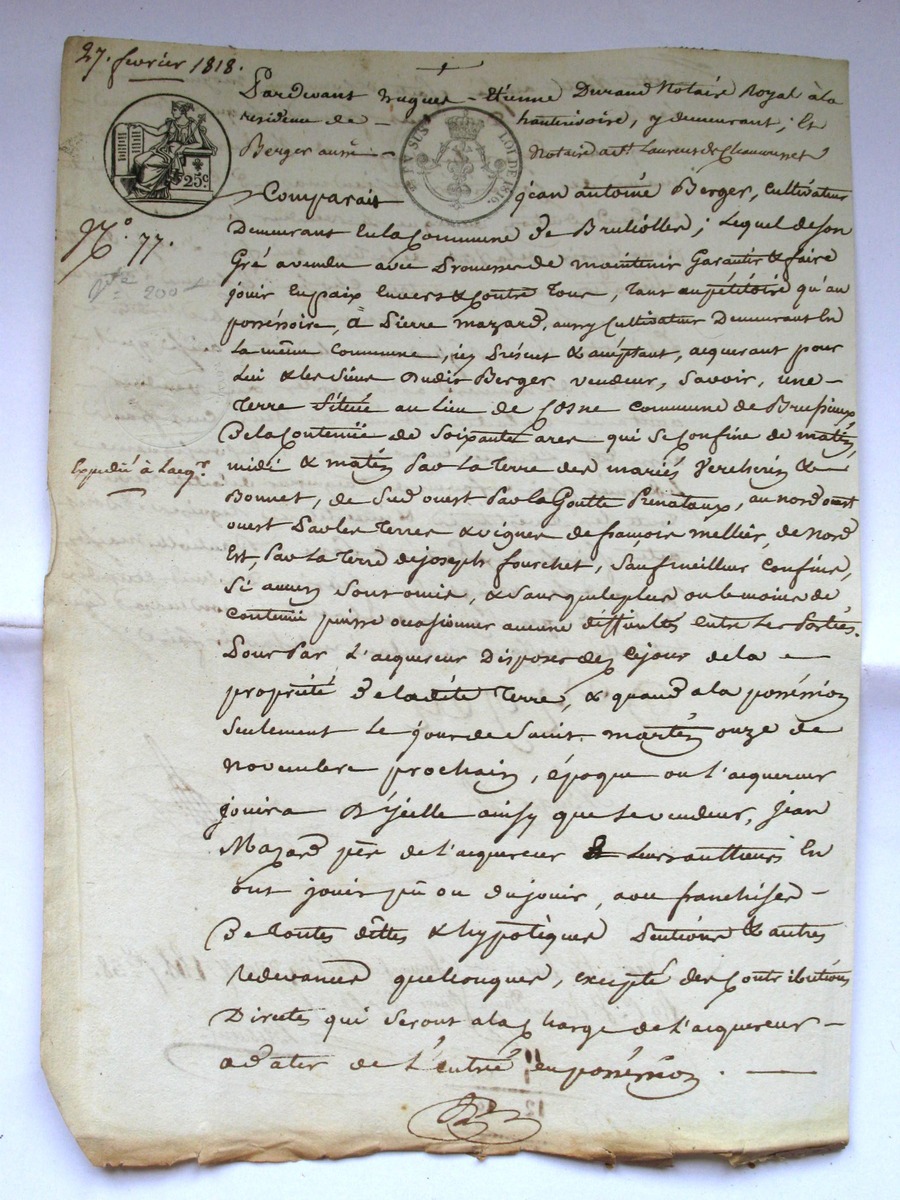 27. fevrier 1818.
Pardevant hugues-étienne Durand Notaire Royal à la
residence de hauterivoire, y demeurant; Et
Berger aussi Notaire a St Laurent de Chamousset
25c
LOI DE 1816.
Comparait jean antoine Berger, cultivateur
N.° 77.
Demeurant En la Commune De Brullolles; Lequel de Son
Gré a vendu avec Promesse de maintenir Garantir & faire
jouir En paix Envers & Contre Tous, Tant au pétitoire qu'au
possessoire, à Pierre mazard, aussy Cultivateur Demeurant En
La même Commune, icy Présent & acceptant, acquerant pour
Lui & les Siens Dudit Berger vendeur, Savoir, une
Terre Située au Lieu de Cosne Commune de Brussieux
De la Contenue de Soixante ares qui Se Confine de matin,
Expedié à Lacqr.
midi & matin Par La Terre des mariés &
Bonnet, de Sud ouest Par la Goutte, au nord ouest
ouest Par les Terres & vignes de françois mellier, de Nord
Est, Par La Terre de joseph fourchet, Sauf meilleur Confins,
Si aucuns Sont omis, & Sans que le plus ou le moins de
Contenue puisse ocasionner aucune difficultés entre Les Parties.
Pour Par L'acquereur Disposer dez Cejour de la
propriété De ladite Terre, & quand a la possession
Seulement Le jour de Saint martin onze de
novembre prochain, époque ou l'acquereur
jouira D'ycelle ainsy que Le vendeur, jean
Mazard père de L'acquereur & Leurs autheurs En
ont jouir pû ou du jouir, avec franchise
De toutes dêttes & hypotèques Pentions & autres
Redevances quelconques, excepté des Contributions
Directes qui Seront a la Charge de L'acquereur
a dater de L'entrée en possession.